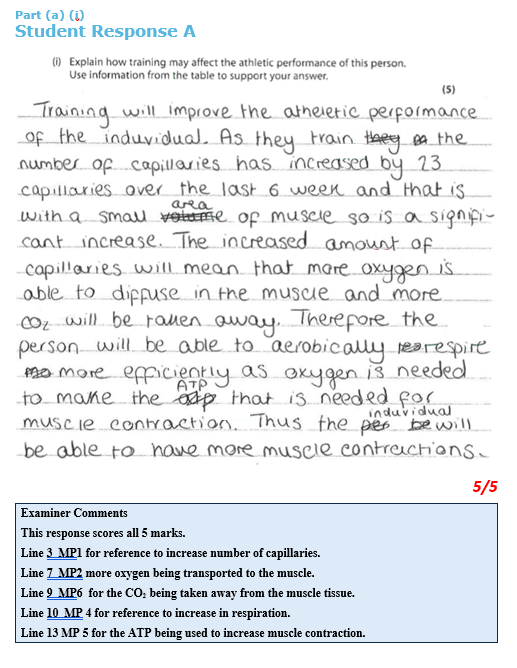 Part (a) (i)
Student Response A
(i) Explain how training may affect the athletic performance of this person.
Use information from the table to support your answer.
(5)
Training will improve the atheletic performance
of the induvidual. As they train they the
number of capillaries has increased by 23
capillaries over the last 6 week and that is
area
with a small volume of muscle so is a signifi-
cant increase. The increased amount of
capillaries will mean that more oxygen is
able to diffuse in the muscle and more
CO2 will be taken away. Therefore the
person will be able to aerobically respire
more efficiently as oxygen is needed
ATP
to make the that is needed for
induvidual
muscle contraction. Thus the per be will
be able to have more muscle contractions.
5/5
Examiner Comments
This response scores all 5 marks.
Line 3 MP1 for reference to increase number of capillaries.
Line 7 MP2 more oxygen being transported to the muscle.
Line 9 MP6 for the CO2 being taken away from the muscle tissue.
Line 10 MP 4 for reference to increase in respiration.
Line 13 MP 5 for the ATP being used to increase muscle contraction.